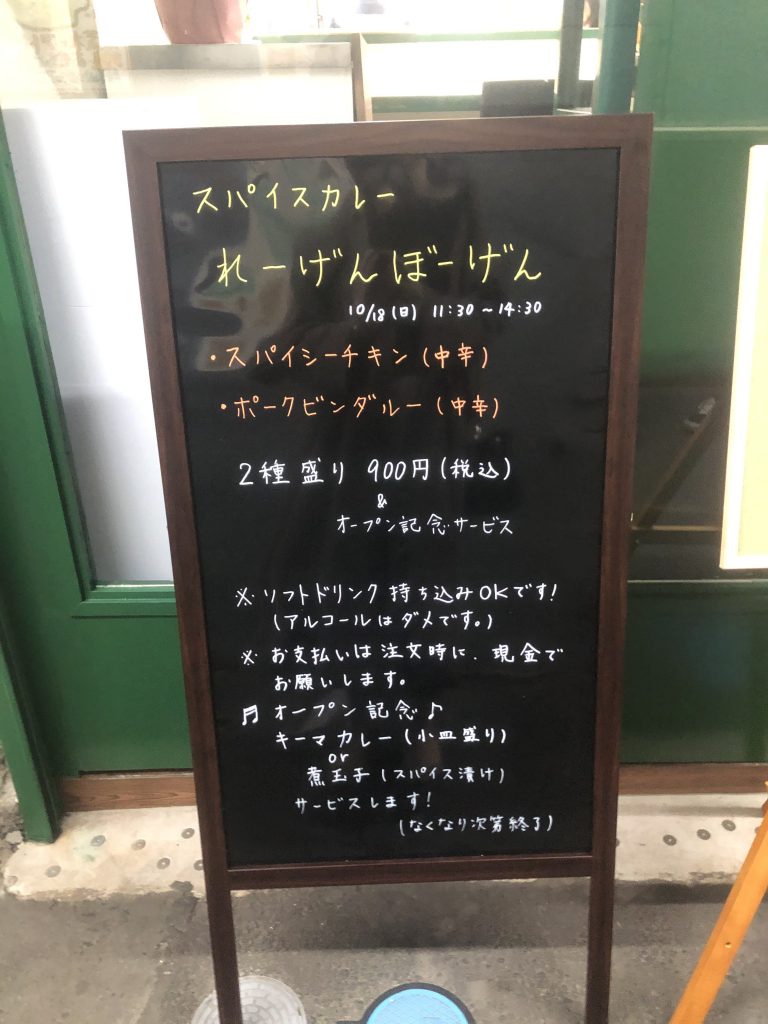 スパイスカレー
れーげんぼーげん
10/18(日) 11:30〜14:30
・スパイシーチキン(中辛)
・ポークビンダルー(中辛)
2種盛り 900円(税込)
&
オープン記念サービス
※ソフトドリンク持ち込みOKです!
(アルコールはダメです。)
※お支払いは注文時に、現金で
お願いします。
♬オープン記念♪
キーマカレー(小皿盛り)
or
煮玉子(スパイス漬け)
サービスします!
(なくなり次第終了)